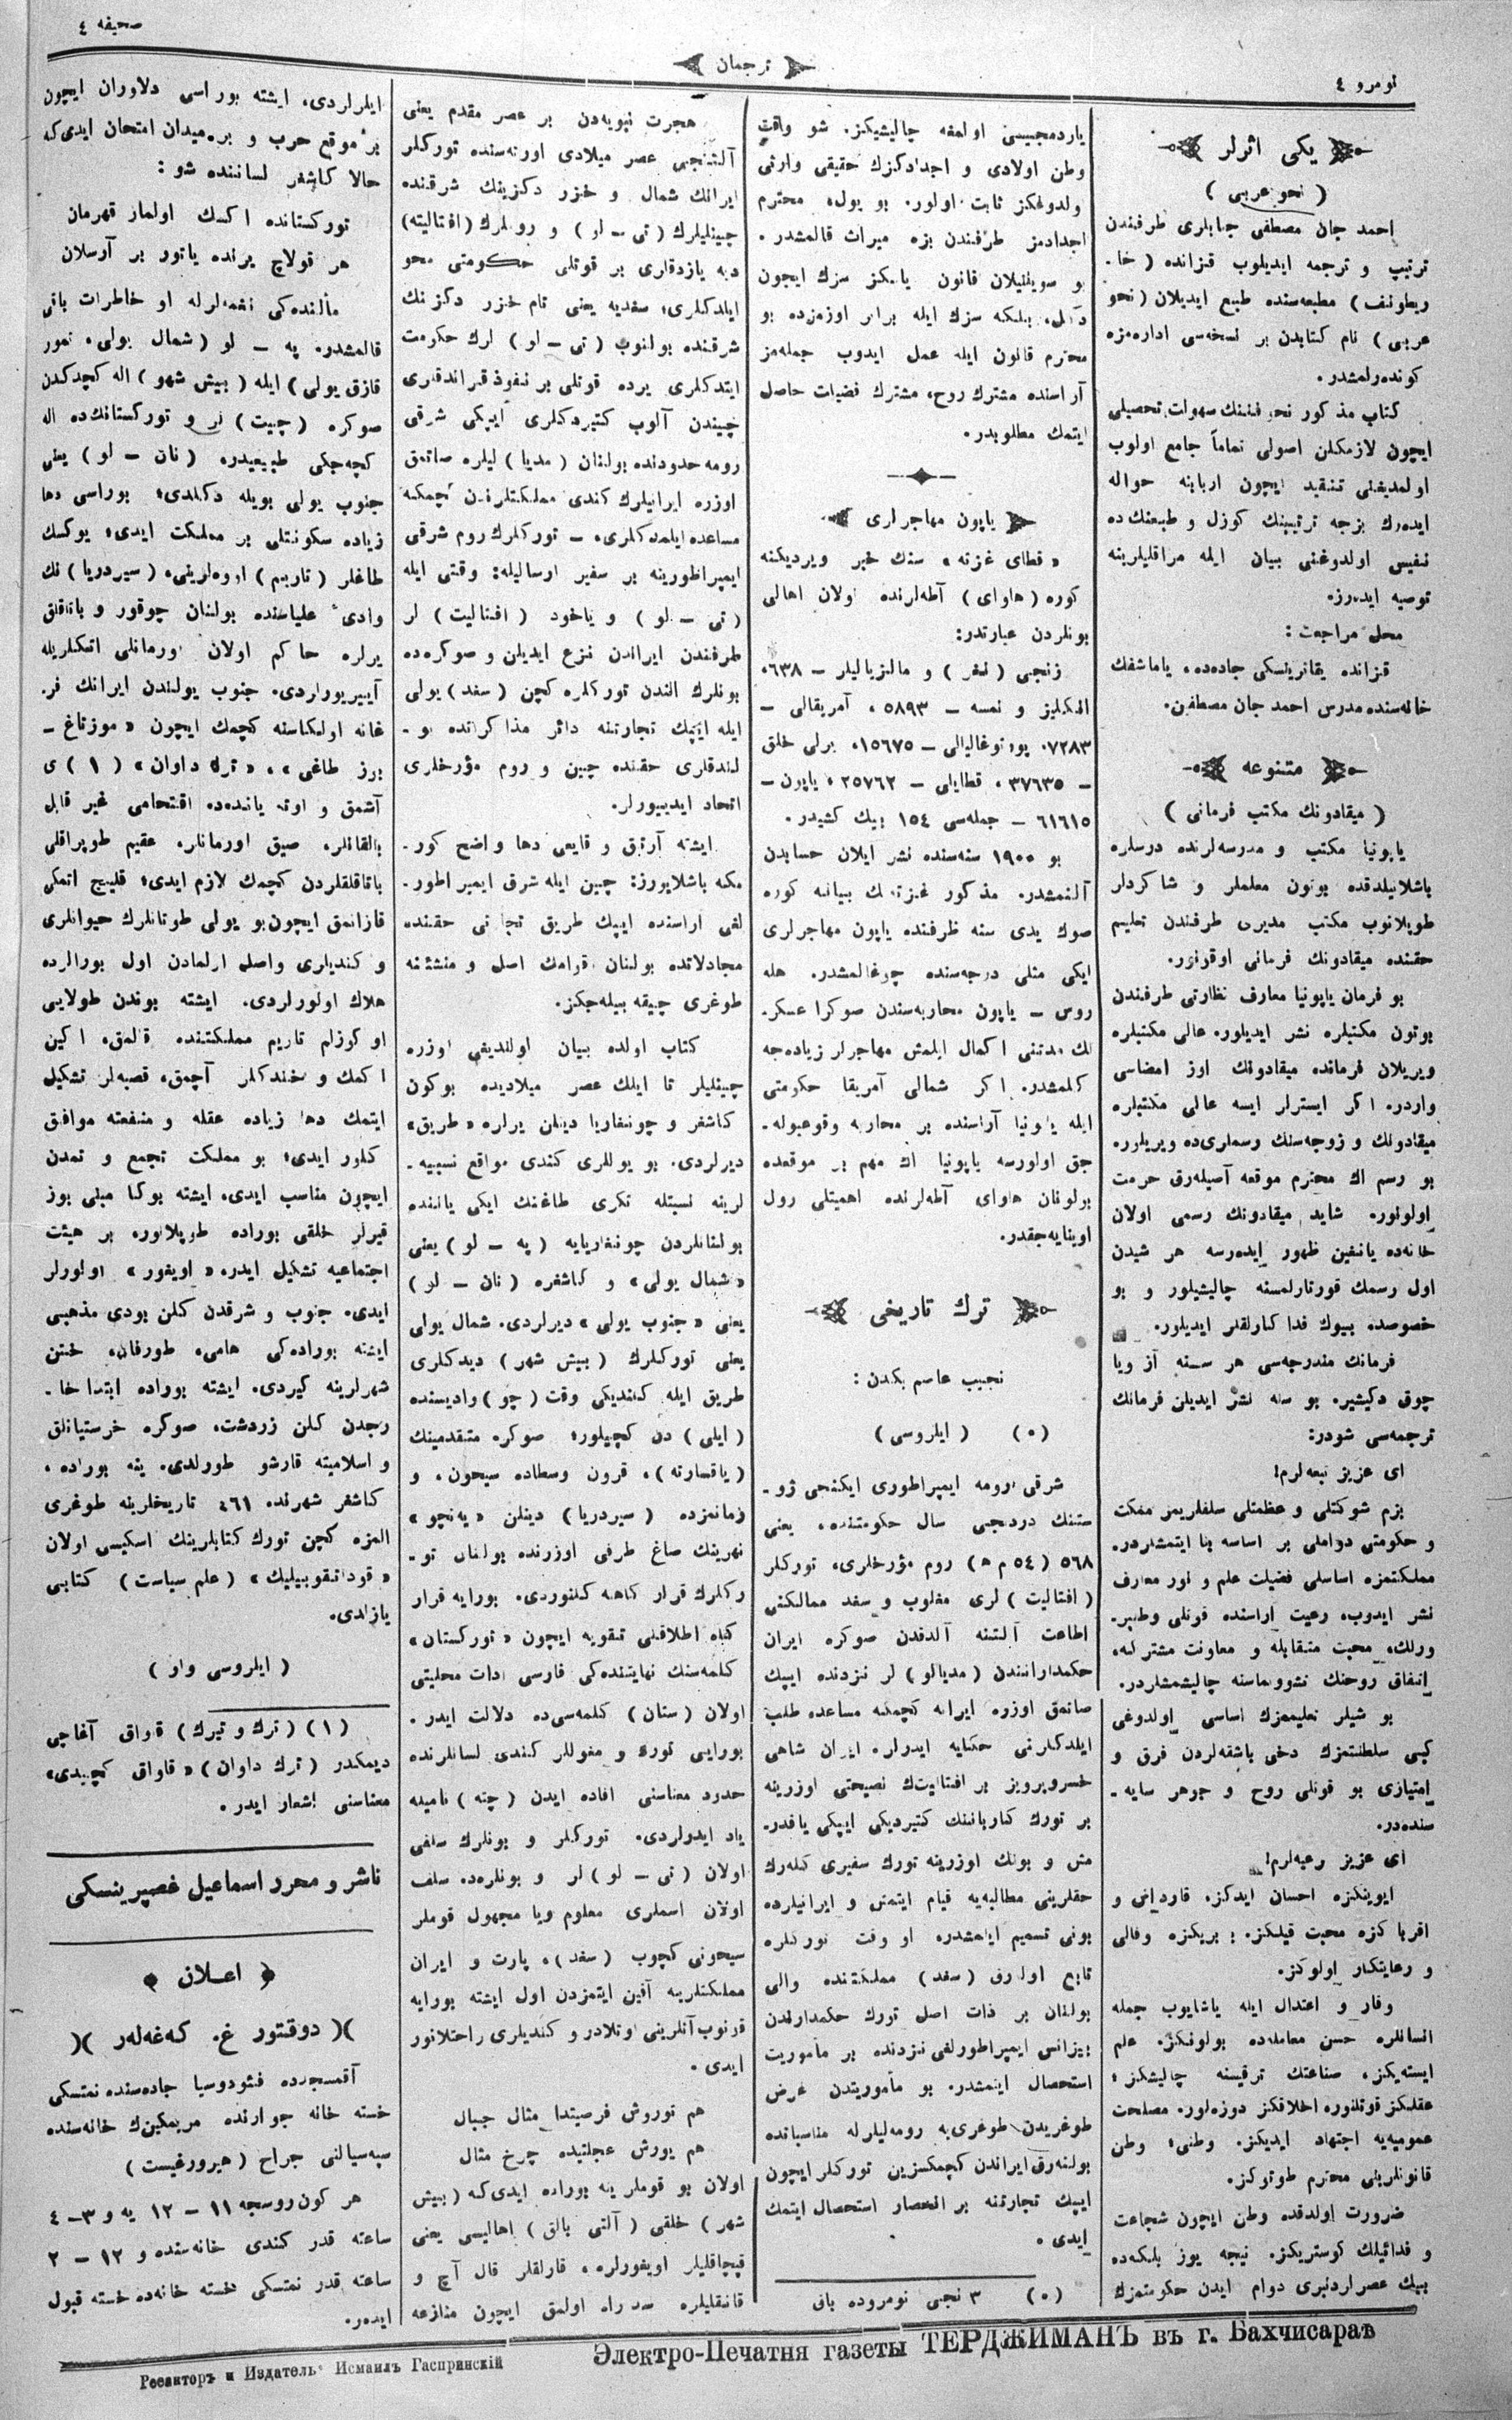 نومرو ٤
ترجمان
صحيفه ٤
يكی اثرلر
( نحو عربی )
احمد جان مصطفی جنابلری طرفندن
ترتيب و ترجمه ايديلوب قزانده ( خا-
ريطونف ) مطبعه‌سنده طبع ايديلان ( نحو
عربی ) نام كتابدن بر نسخه‌سی اداره‌مزه
كوندەرلمشدر.
كتاب مذكور نحو فننك سهولت تحصيلی
ايچون لازمكلن اصولی تماماً جامع اولوب
اولمديغنی تنقيد ايچون اربابنه حواله
ايدەرك بزجه ترتيبنك كوزل و طبعنك ده
نفيس اولدوغنی بيان ايله مراقليلرينه
توصيه ايدەرز.
محل مراجعت :
قزانده يقاترينسكی جاده‌ده، ياماشفك
خانه‌سنده مدرس احمد جان مصطفين.
متنوعه
( ميقادونك مكتب فرمانی )
ياپونيا مكتب و مدرسه‌لرنده درسلره
باشلانيلدقده بوتون معلملر و شاكردلر
طوپلانوب مكتب مديری طرفندن تعليم
حقنده ميقادونك فرمانی اوقونور.
بو فرمان ياپونيا معارف نظارتی طرفندن
بوتون مكتبلره نشر ايديلور. عالی مكتبلره
ويريلان فرمانده ميقادونك اوز امضاسی
واردر. اكر ايسترلر ايسه عالی مكتبلره
ميقادونك و زوجه‌سنك رسملری‌ده ويريلور.
بو رسم اك محترم موقعه آصيله‌رق حرمت
اولونور. شايد ميقادونك رسمی اولان
خانه‌ده يانغين ظهور ايدەرسه هر شيدن
اول رسمك قورتارلمسنه چاليشيلور و بو
خصوصده بيوك فداكارلقلر ايديلور.
فرمانك مندرجه‌سی هر سنه آز ويا
چوق دكيشير. بو سنه نشر ايديلن فرمانك
ترجمه‌سی شودر:
ای عزيز تبعه‌لرم!
بزم شوكتلی و عظمتلی سلفلريمز مملكت
و حكومتی دواملی بر اساسه بنا ايتمشلردر.
مملكتمزه اساسلی فضيلت علم و نور معارف
نشر ايدوب، رعيت اراسنده قوتلی وطنپر-
ورلك، محبت متقابله و معاونت مشتركه،
اتفاق روحنك نشوونماسنه چاليشمشلردر.
بو شيلر تعليممزك اساسی اولدوغی
كبی سلطنتمزك دخی باشقه‌لردن فرق و
امتيازی بو قوتلی روح و جوهر سايه-
سنده‌در.
ای عزيز رعيه‌لرم!
ابوينكزه احسان ايدكز. قارداش و
اقرباكزه محبت قيلكز. بربريكزه وفالی
و رعايتكار اولوكز.
وقار و اعتدال ايله ياشايوب جمله
انسانلره حسن معامله‌ده بولونكز. علم
ايسته‌يكز، صناعتك ترقيسنه چاليشكز؛
عقلكز قوتلنوره اخلاقكز دوزەلور. مصلحت
عموميه‌يه اجتهاد ايديكز. وطنی؛ وطن
قانونلرينی محترم طوتوكز.
ضرورت اولدقده وطن ايچون شجاعت
و فدائيلك كوستريكز. نيجه يوز بلكه‌ده
بيك عصرلردنبری دوام ايدن حكومتمزك
ياردمجيسی اولمغه چاليشيكز. شو وقت
وطن اولادی و اجدادكزك حقيقی وارثی
ولدوغكز ثابت اولور. بو يول، محترم
اجدادمز طرفندن بزه ميراث قالمشدر.
بو سويلنيلان قانون يالكز سزك ايچون
دكل، بلكه سزك ايله برابر اوزمزده بو
محترم قانون ايله عمل ايدوب جمله‌مز
آراسنده مشترك روح، مشترك فضيات حاصل
ايتمك مطلوبدر.
ياپون مهاجرلری
« قطای غزته » سنك خبر ويرديكنه
كوره ( هاوای ) آطه‌لرنده اولان اهالی
بونلردن عبارتدر:
زنجی ( نغر ) و مالزياليلر – ٦٣٨،
انكليز و نمسه – ٥٨٩٣، آمريقالی –
٧٢٨٣، پورتوغاليالی – ١٥٦٧٥، يرلی خلق
– ٣٧٦٣٥، قطايلی – ٢٥٧٦٢، ياپون –
٦١٦١٥ – جمله‌سی ١٥٤ بيك كشيدر.
بو ١٩٠٠ سنه‌سنده نشر ايلان حسابدن
آلنمشدر. مذكور غزته‌نك بياننه كوره
صوك يدی سنه ظرفنده ياپون مهاجرلری
ايكی مثلی درجه‌سنده چوغالمشدر. هله
روس – ياپون محاربه‌سندن صوكرا عسكر-
لك مدتنی اكمال ايلمش مهاجرلر زياده‌جه
كلمشدر. اكر شمالی آمريقا حكومتی
ايله ياپونيا آراسنده بر محاربه وقوعبوله-
جق اولورسه ياپونيا اك مهم بر موقعده
بولونان هاوای آطه‌لرنده اهميتلی رول
اوينايه‌جقدر.
ترك تاريخی
نجيب عاصم بكدن :
(٥) ( ايلروسی )
شرقی رومه ايمپراطوری ايكنجی ژو-
ستنك دردنجی سال حكومتنده، يعنی
روم مؤرخلری، توركلر
( افتاليت ) لری مغلوب و سغد ممالكنی
اطاعت آلتنه آلدقدن صوكره ايران
حكمدارانندن ( مديالو ) لر نزدنده ايپك
صاتمق اوزره ايرانه كچمكه مساعده طلب
ايلدكلرنی حكايه ايدرلر. ايران شاهی
خسروپرويز بر افتاليتك نصيحتی اوزرينه
بر تورك كاربانينك كتيرديكی ايپكی ياقدر-
مش و بونك اوزرينه تورك سفيری كله‌رك
حقلرينی مطالبه‌يه قيام ايتمش و ايرانيلرده
بونی تسميم ايلمشدر. او وقت توركلره
تابع اولارق ( سغد ) مملكتنده والی
بولنان بر ذات اصل تورك حكمدارلندن
بيزانس ايمپراطورلغی نزدنده بر مأموريت
استحصال ايتمشدر. بو مأموريتدن غرض
طوغريدن طوغری‌يه رومه‌ليلرله مناسباتده
بولنه‌رق ايراندن كچمكسزين توركلر ايچون
ايپك تجارتنه بر انحصار استحصال ايتمك
ايدی.
(٥) ٣ نجی نومروده باق
هجرت نبويه‌دن بر عصر مقدم يعنی
آلتنجی عصر ميلادی اورته‌سنده توركلر
ايرانك شمال و خزر دكزينك شرقنده
چينليلرك ( تی – لو ) و روملرك ( افتاليته )
ديه يازدقلری بر قوتلی حكومتی محو
ايلدكلری؛ سغديه يعنی تام خزر دكزنك
شرقنده بولنوب ( تی – لو ) لرك حكومت
ايتدكلری يرده قوتلی بر نفوذ قزاندقلری
چيندن آلوب كتيردكلری ايپكی شرقی
رومه حدودنده بولنان ( مديا ) ليلره صاتمق
اوزره ايرانيلرك كندی مملكتلرندن كچمكه
مساعده ايلمدكلری. – توركلرك روم شرقی
ايمپراطورينه بر سفير ارساليله: وقتی ايله
( تی – لو ) و ياخود ( افتاليت ) لر
طرفندن ايراندن نزع ايديلن و صوكره‌ده
بونلرك الندن توركلره كچن ( سغد ) يولی
ايله ايپك تجارتنه دائر مذاكرانده بو-
لندقلری حقنده چين و روم مؤرخلری
اتحاد ايدييورلر.
ايشته آرتق و قايعی دها واضح كور-
مكه باشلايورز: چين ايله شرق ايمپراطور-
لغی اراسنده ايپك طريق تجارتی حقنده
مجادلاتده بولنان اقوامك اصل و منشئنه
طوغری چيقه بيله‌جكز.
كتاب اولده بيان اولنديغی اوزره
چينليلر تا ايلك عصر ميلاديده بوكون
كاشغر و چونغاريا دينلن يرلره «طريق»
ديرلردی. بو يوللری كندی مواقع نسبيه-
لرينه نسبتله تكری طاغنك ايكی ياننده
بولنانلردن چونغاريايه ( په – لو ) يعنی
«شمال يولی» و كاشغره ( نان – لو )
يعنی « جنوب يولی » ديرلردی. شمال يولی
يعنی توركلرك ( بيش شهر ) ديدكلری
طريق ايله كيتديكی وقت ( چو ) واديسنده
( ايلی ) دن كچيلور؛ صوكره متقدمينك
( ياقسارته )، قرون وسطاده سيحون، و
زمانمزده ( سيردريا ) دينلن « يه‌نچو »
نهرينك صاغ طرفی اوزرنده بولنان تو-
ركلرك قرار كاهنه كلنوردی. بورايه قرار
كاه اطلاقنی تقويه ايچون « توركستان »
كلمه‌سنك نهايتنده‌كی فارسی ادات محليتی
اولان ( ستان ) كلمه‌سی‌ده دلالت ايدر.
بورايی تورك و مغوللر كندی لسانلرنده
حدود معناسنی افاده ايدن ( چته ) ناميله
ياد ايدرلردی. توركلر و بونلرك سلفی
اولان ( تی – لو ) لر و بونلره‌ده سلف
اولان اسملری معلوم ويا مجهول قوملر
سيحونی كچوب ( سغد )، پارت و ايران
مملكتلرينه آقين ايتمزدن اول ايشته بورايه
قونوب آتلرينی اوتلادر و كنديلری راحتلانور
ايدی.
هم نوروش فرصيتدا مثال جبال
هم يورش عجلتيده چرخ مثال
اولان بو قوملر ينه بوراده ايدی كه ( بيش
شهر ) خلقی ( آلتی بالق ) اهاليسی يعنی
قپچاقليلر اويغورلره، قارلقلر قال آچ و
قانقليلره سد راه اولمق ايچون منازعه
ايلرلردی، ايشته بوراسی دلاوران ايچون
بر موقع حرب و بر ميدان امتحان ايدی‌كه
حالا كاشغر لساننده شو :
توركستانده اكسك اولماز قهرمان
هر قولاچ يرنده ياتور بر آرسلان
مألنده‌كی نغمه‌لرله او خاطرات باقی
قالمشدر. په – لو ( شمال يولی، تمور
قازق يولی ) ايله ( بيش شهر ) اله كچدكدن
صوكره ( چيت ) لر و توركستانك‌ده اله
كچه‌جكی طبيعيدر. ( نان – لو ) يعنی
جنوب يولی بويله دكلدی؛ بوراسی دها
زياده سكونتلی بر مملكت ايدی؛ يوكسك
طاغلر ( تاريم ) اوەلرينی، ( سيردريا ) نك
وادیٔ علياسنده بولنان چوقور و باتاقلق
يرلره حاكم اولان اورمانلی اتكلريله
آييريوراردی. جنوب يولندن ايرانك فر-
غانه اولكاسنه كچمك ايچون « موزتاغ –
بوز طاغی »، « ترك داوان » ( ١ ) ی
آشمق و اوته ياننده‌ده اقتحامی غير قابل
بالقانلر، صيق اورمانلر، عقيم طوپراقلی
باتاقلقلردن كچمك لازم ايدی؛ قليج اتمكی
قازانمق ايچون بو يولی طوتانلرك حيوانلری
و كنديلری واصل اولمادن اول بورالرده
هلاك اولورلردی. ايشته بوندن طولايی
او كوزلم تاريم مملكتنده قالمق، اكين
اكمك و خندكلر آچمق، قصبه‌لر تشكيل
ايتمك دها زياده عقله و منفعته موافق
كلور ايدی؛ بو مملكت تجمع و تمدن
ايچون مناسب ايدی، ايشته بوكا مبنی بوز
قيرلر خلقی بوراده طوپلانور، بر هيئت
اجتماعيه تشكيل ايدر، « اويغور » اولورلر
ايدی. جنوب و شرقدن كلن بودی مذهبی
ايشته بوراده‌كی هامی، طورفان، ختن
شهرلرينه كيردی. ايشته بوراده ابتدا خا-
رجدن كلن زردشت، صوكره خرستيانلق
و اسلاميته قارشو طورلدی. ينه بوراده،
كاشغر شهرنده ٤٦١ تاريخلرينه طوغری
المزه كچن تورك كتابلرينك اسكيسی اولان
« قودانقوبيليك » ( علم سياست ) كتابی
يازلدی.
( ايلروسی وار )
(١) ( ترك و تيرك ) قاواق آغاچی
ديمكدر ( ترك داوان ) « قاواق كچيدی»
معناسنی اشعار ايدر.
ناشر و محرر اسماعيل غصپرينسكی
اعـلان
)( دوقتور غ. كه‌غه‌لەر )(
آقمسجدده فئودوسيا جاده‌سنده نمتسكی
خسته خانه جوارنده مريمكين‌ك خانه‌سنده
سپه‌سيالنی جراح ( هيرورغيست )
هر كون روسجه ١١ – ١٢ يه و ٣–٤
ساعته قدر كندی خانه‌سنده و ١٢ – ٢
ساعته قدر نمتسكی خسته خانه‌ده خسته قبول
ايدەر.
Электро-Печатня газеты ТЕРДЖИМАНЪ въ г. Бахчисараѣ
Редакторъ и Издатель: Исмаилъ Гаспринскій